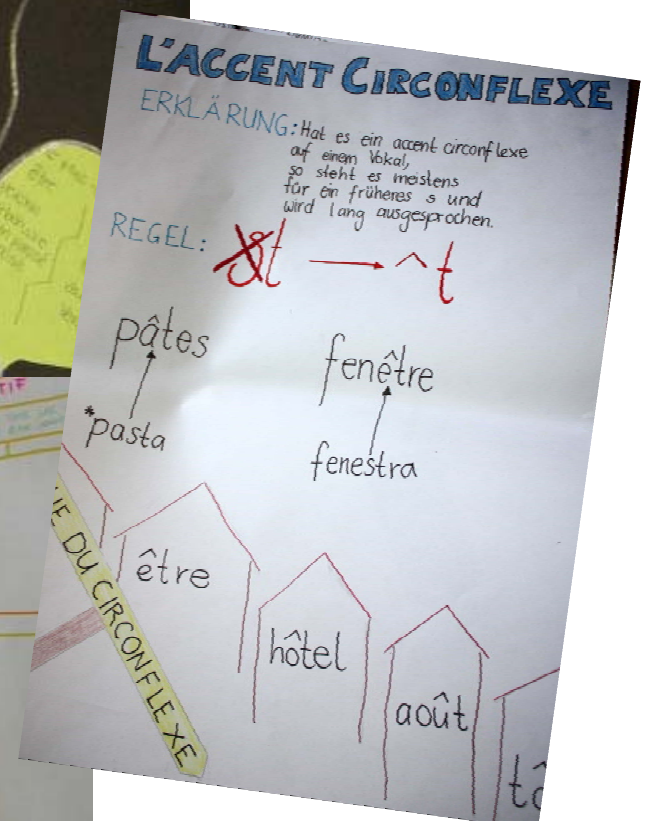 L'ACCENT CIRCONFLEXE
ERKLÄRUNG: Hat es ein accent circonflexe
auf einem Vokal,
so steht es meistens
für ein früheres s und
wird lang ausgesprochen.
REGEL: st → ^t
pâtes
fenêtre
*pasta
fenestra
être
hôtel
août
tô
UE DU CIRCONFLEXE
TIF